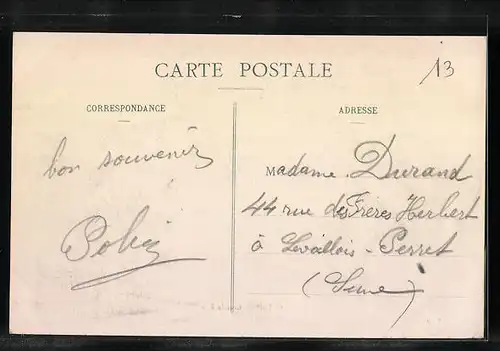 CARTE POSTALE
13
CORRESPONDANCE
ADRESSE
bon souvenir
Madame Durand
44 rue des Frères Herbert
à Levallois-Perret
(Seine)